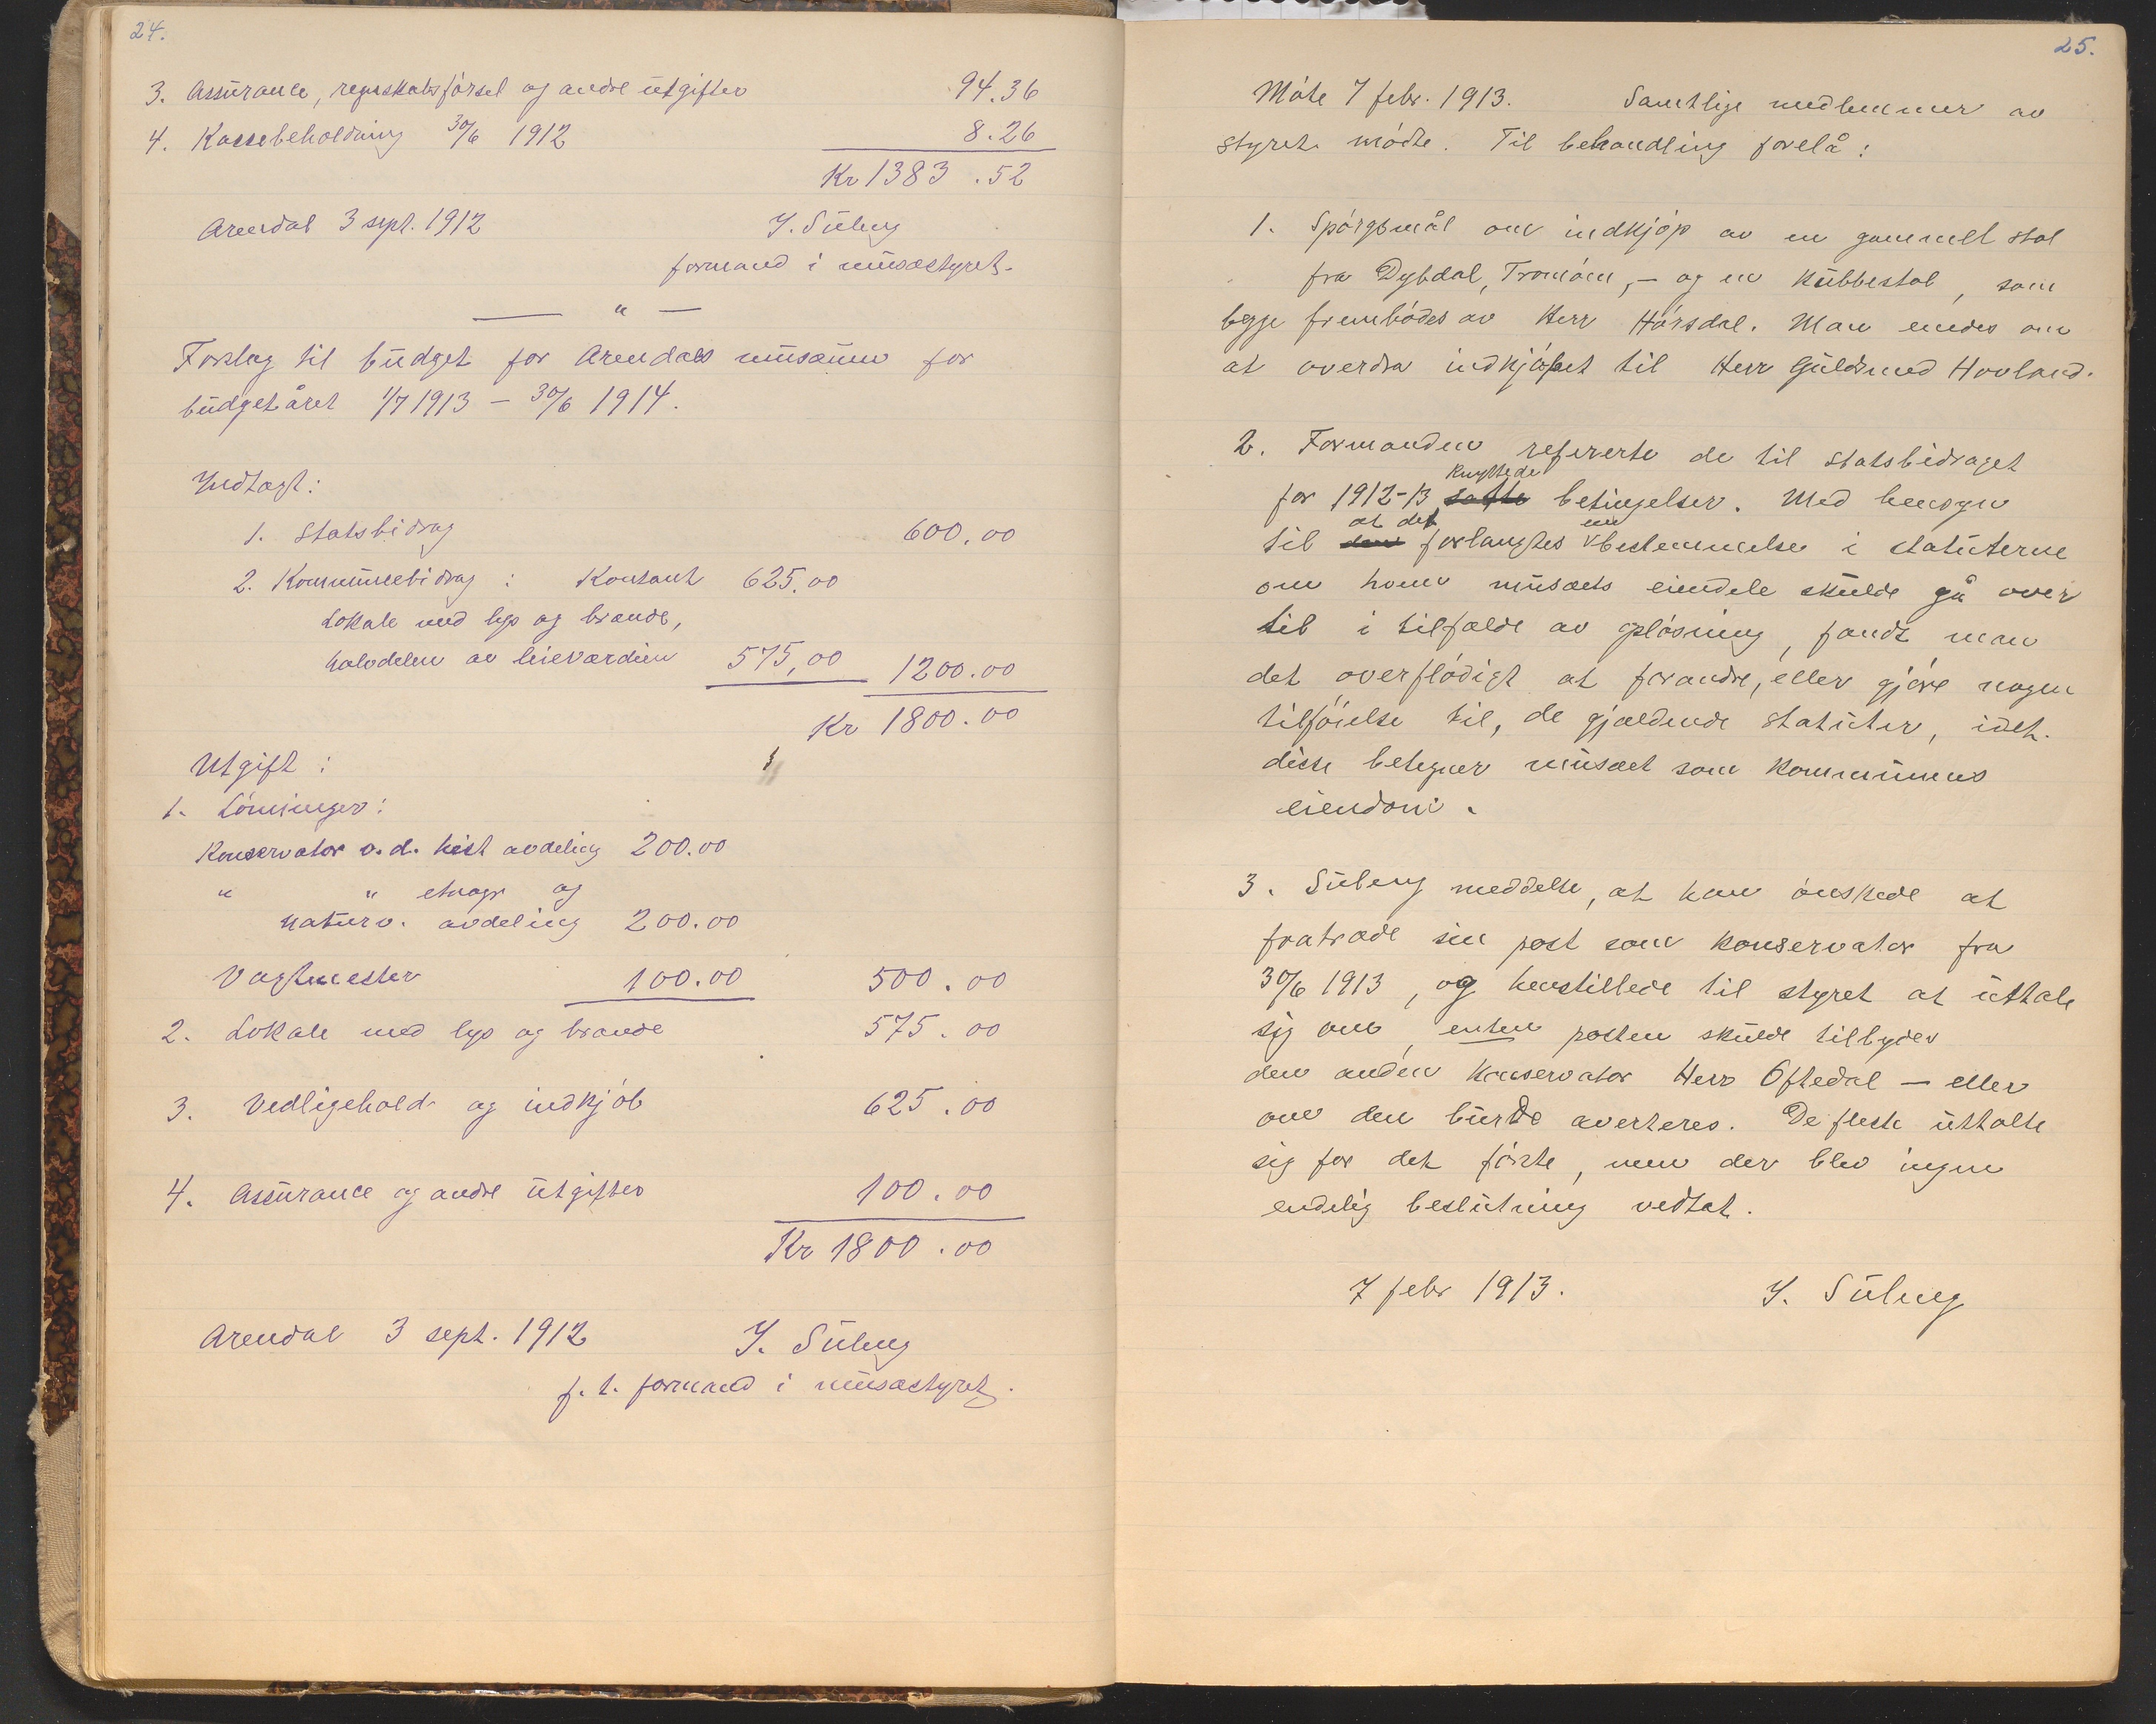 24.
3. Assurance, regnskabsførsel og andre utgifter 94.36
4. Kassebeholdning 30/6 1912 8.26
Kr 1383.52
Arendal 3 sept. 1912 J. Süberg
formand i musæstyret.
— " —
Forslag til budget for Arendals musæum for
budgetåret 1/7 1913 – 30/6 1914.
Indtægt:
1. Statsbidrag 600.00
2. Kommunebidrag : Kontant 625.00
Lokale med lys og brænde,
halvdelen av leieværdien 575,00 1200.00
Kr 1800.00
Utgift :
1. Lönninger:
Konservator v. d. hist avdeling 200.00
" " etnogr og
naturv. avdeling 200.00
Vagtmester 100.00 500.00
2. Lokale med lys og brænde 575.00
3. Vedligehold og indkjöb 625.00
4. Assurance og andre utgifter 100.00
Kr 1800.00
Arendal 3 sept. 1912 J. Süberg
f. t. formand i musæstyret.
25.
Möte 7 febr. 1913. Samtlige medlemmer av
styret mödte. Til behandling forelå :
1. Spörgsmål om indkjöp av en gammelt stol
fra Dybdal, Tromöen, – og en kubbestol, som
begge frembödes av Herr Hörsdal. Man enedes om
at overdra indkjöpet til Herr Guldsmed Hovland.
2. Formanden refererte de til statsbidraget
knyttede
for 1912-13 satte betingelser. Med hensyn
at det en
til den forlangtes bestemmelse i statuterne
om hvem musæets eiendele skulde gå over
til i tilfælde av oplösning, fandt man
det overflödigt at forandre, eller gjöre nogen
tilföielse til, de gjældende statuter, idet
disse betegner musæet som kommunens
eiendom.
3. Süberg meddelte, at han önskede at
fratræde sin post som konservator fra
30/6 1913, og henstillede til styret at uttale
sig om, enten posten skulde tilbydes
den anden konservator Herr Oftedal – eller
om den burde averteres. De fleste uttalte
sig for det förste, men der blev ingen
endelig beslutning vedtat.
7 febr 1913. J. Süberg